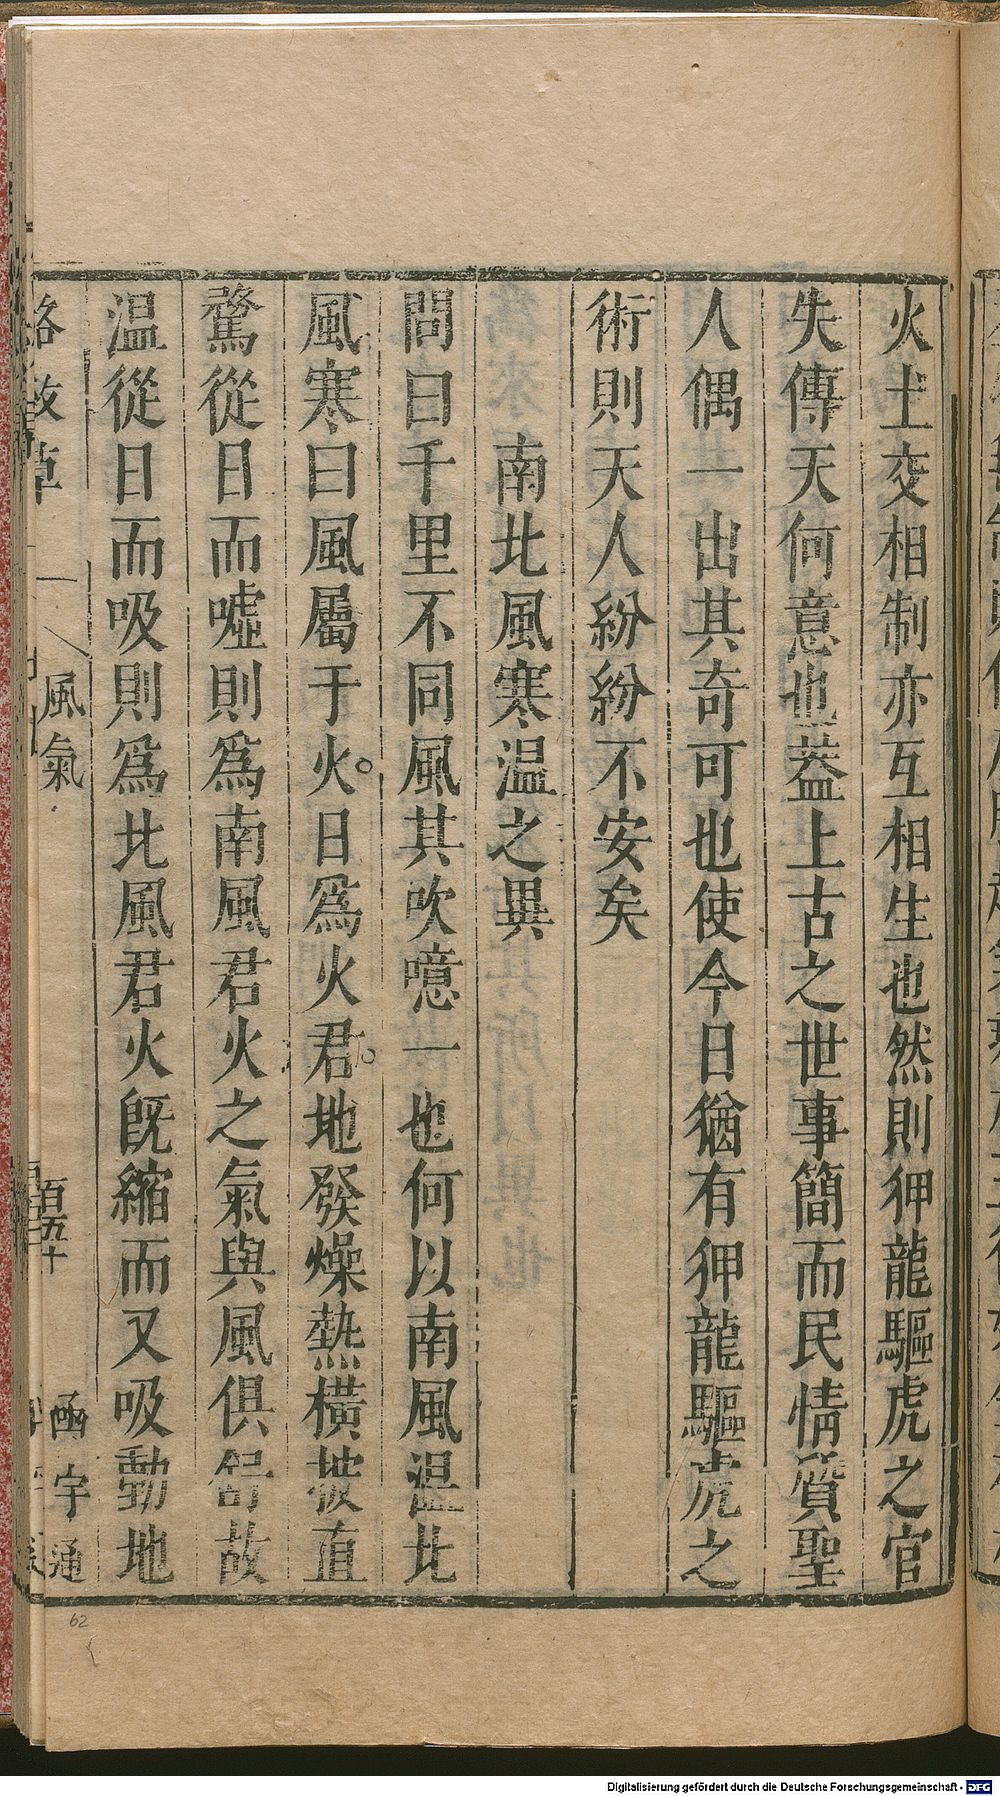 火土交相制亦互相生也然則狎龍驅虎之官
失傳天何意也葢上古之世事簡而民情質聖
人偶一出其奇可也使今日猶有狎龍驅虎之
術則天人紛紛不安矣
南北風寒温之異
問曰千里不同風其吹噫一也何以南風温北
風寒曰風屬于火日為火君地發燥熱橫披直
騖從日而噓則為南風君火之氣與風俱舒故
温從日而吸則為北風君火既縮而又吸動地
格致草
風氣
百五十
函宇通
62
Digitalisierung gefördert durch die Deutsche Forschungsgemeinschaft - DFG